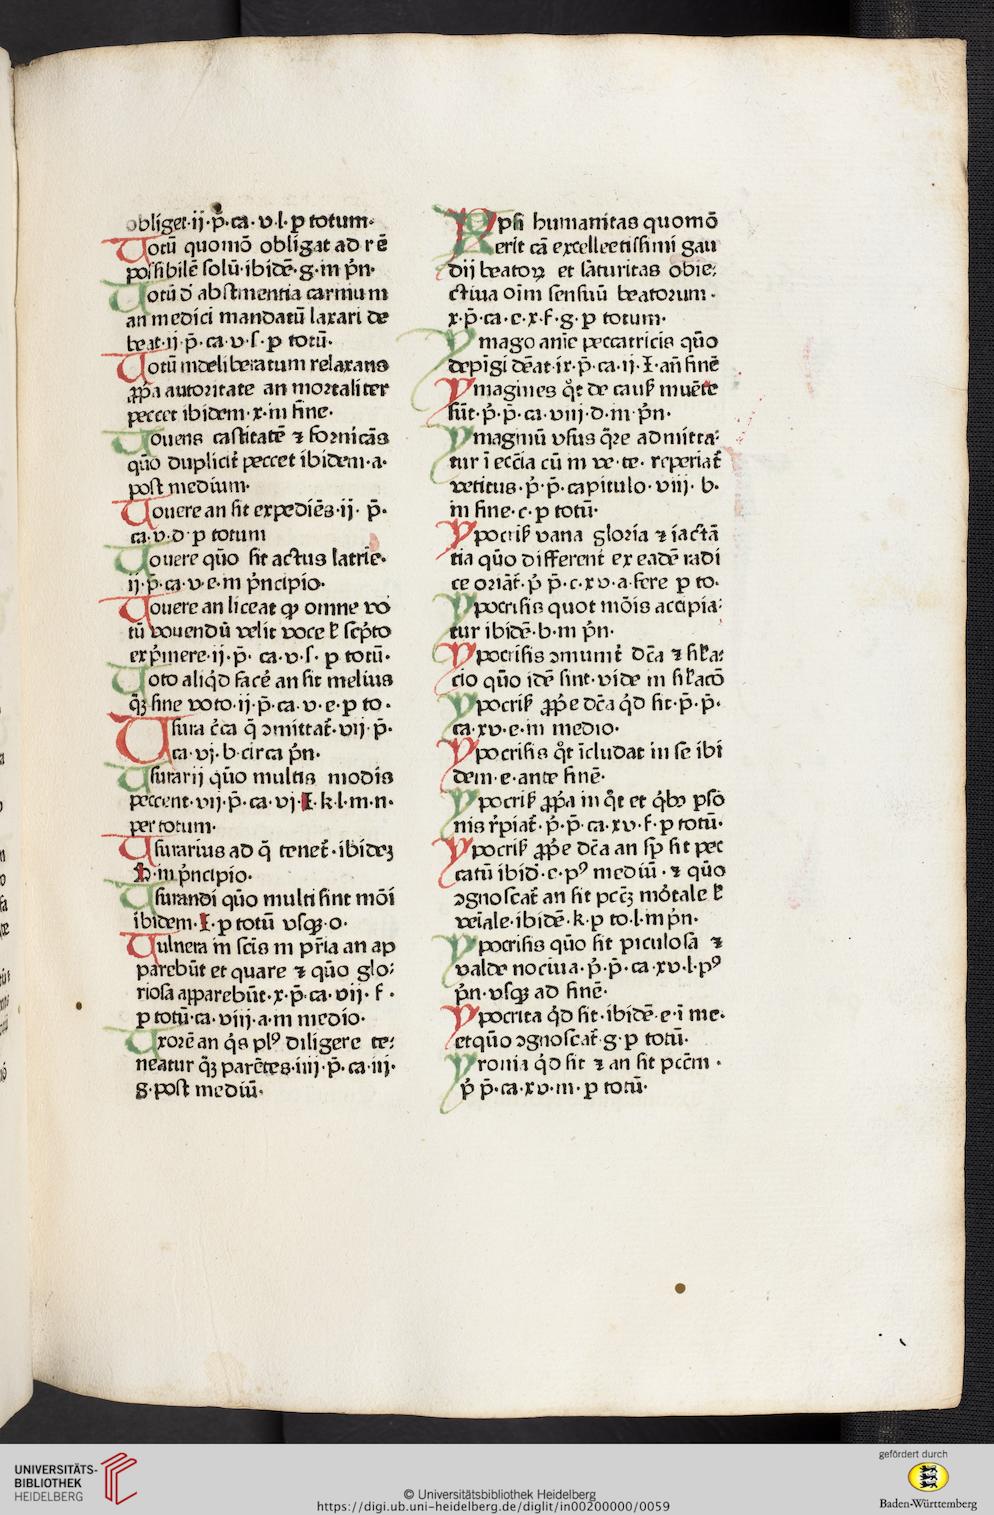 obliget·ij·p̄·ca·v·l·p totum·
Uotū quomō obligat ad rē
possibilē solū·ibidē·g·in p̍n·
Uotū d̄ abstinentia carnium
an medici mandatū laxari de
beat·ij·p̄·ca·v·f·p totū·
Uotū indeliberatum relaxans
ꝓp̍a autoritate an mortaliter
peccet ibidem·x·in fine·
Uouens castitatē ⁊ fornicās
quō duplicit̉ peccet ibidem·a·
post medium·
Uouere an sit expediēs·ij·p̄·
ca·v·d·p totum
Uouere quō sit actus latrie·
ij·p̄·ca·v·e·in p̍ncipio·
Uouere an liceat ꝙ omne vo
tū vouendū velit voce ł sc̍pto
exp̍mere·ij·p̄·ca·v·f·p totū·
Uoto aliq̍d face̍ an sit melius
q̄ꝫ sine voto·ij·p̄·ca·v·e·p to·
Usura c̍ca q̄ ↄmittat̉·vij·p̄·
ca·vj·b·circa p̍n·
Usurarij quō multis modis
peccent·vij·p̄·ca·vj·I·k·l·m·n·
per totum·
Usurarius ad q̄ tenet̉·ibideꝫ
h·in p̍ncipio·
Usurandi quō multi sint mōi
ibidem·I·p totū vsqꝫ·o·
Uulnera in scīs in pr̍ia an ap
parebūt et quare ⁊ quō glo⸗
riosa apparebūt·x·p̄·ca·vij·f·
p totū·ca·viij·a·in medio·
Uxorē an q̍s plꝰ diligere te⸗
neatur q̄ꝫ parētes·iiij·p̄·ca·iij·
g·post mediū·
Xpsi humanitas quomō
erit cā excelleetissimi gau
dij beatoꝝ et saturitas obie⸗
ctiua oīm sensuū beatorum·
x·p̄·ca·e·x·f·g·p totum·
Ymago anīe peccatricis quō
depīgi dēat·ix·p̄·ca·ij·I·an̄ finē
Ymagines q̊t de causꝭ inuēte
sūt·p̍·p̄·ca·viij·d·in p̍n·
Ymaginū vsus q̄re admitta⸗
tur ī eccīa cū in ve·te·reperiat̉
vetitus·p̍·p̄·capitulo·viij·b·
in fine·c·p totū·
Ypocrisꝭ vana gloria ⁊ iactā
tia quō different ex eadē radi
ce oriāt̉·p̍·p̄·c·xv·a·fere p to·
Ypocrisis quot mōis accipia⸗
tur ibidē·b·in p̍n·
Ypocrisis ↄmunit̉ dc̄a ⁊ sil̄a⸗
cio quō idē sint·vide in sil̄acō
Ypocrisꝭ ꝓp̍e dc̄a q̍d sit·p̍·p̄·
ca·xv·e·in medio·
Ypocrisis q̊t īcludat in se ibi
dem·e·ante finē·
Ypocrisꝭ ꝓp̍a in q̊t et q̍bꝫ p̄so
nis r̍piat̉·p̍·p̄·ca·xv·f·p totū·
Ypocrisꝭ ꝓp̍e dc̄a an sp̄ sit pec
catū ibid̄·e·pꝰ mediū·⁊ quō
ↄgnoscat̉ an sit pcc̄ꝫ mo̍tale ł
veīale·ibidē·k·p to·l·in p̍n·
Ypocrisis quō sit piculosa ⁊
valde nociua·p̍·p̄·ca·xv·l·pꝰ
p̍n·vsqꝫ ad finē·
Ypocrita q̍d sit·ibidē·e·ī me·
et quō ↄgnoscat̉·g·p totū·
Yronia q̍d sit ⁊ an sit pcc̄m·
p̍ p̄·ca·xv·m·p totū·
UNIVERSITÄTS-
BIBLIOTHEK
HEIDELBERG
© Universitätsbibliothek Heidelberg
https://digi.ub.uni-heidelberg.de/diglit/in00200000/0059
gefördert durch
Baden-Württemberg